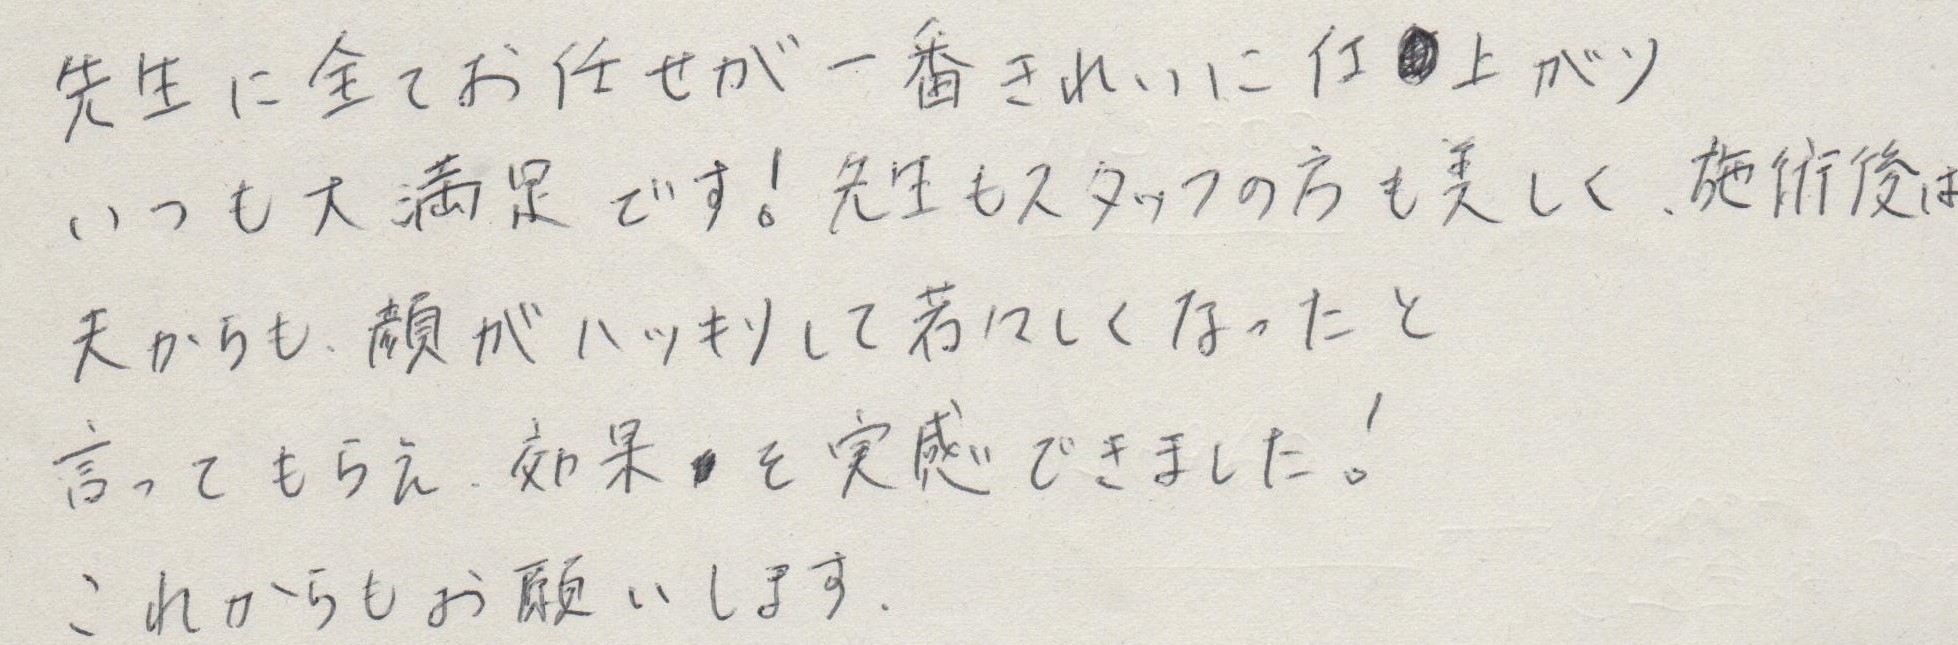 先生に全てお任せが一番きれいに仕上がり
いつも大満足です！先生もスタッフの方も美しく、施術後は
夫からも、顔がハッキリして若々しくなったと
言ってもらえ、効果を実感できました！
これからもお願いします。